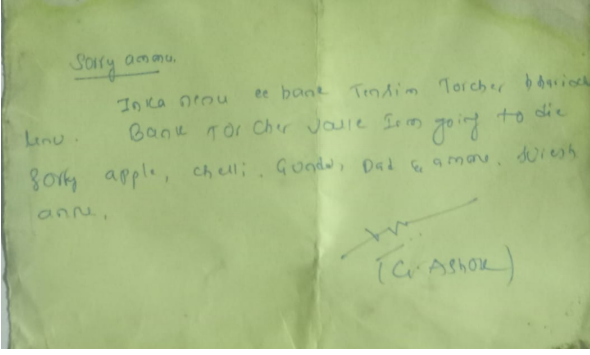 Sorry amma.
Inka nenu ee bank Tendim Torcher bharinch
lenu. Bank Torcher valle I am going to die
Sorry apple, chelli, Gundu, Dad & amma. Suresh
anna.
(G. Ashok)